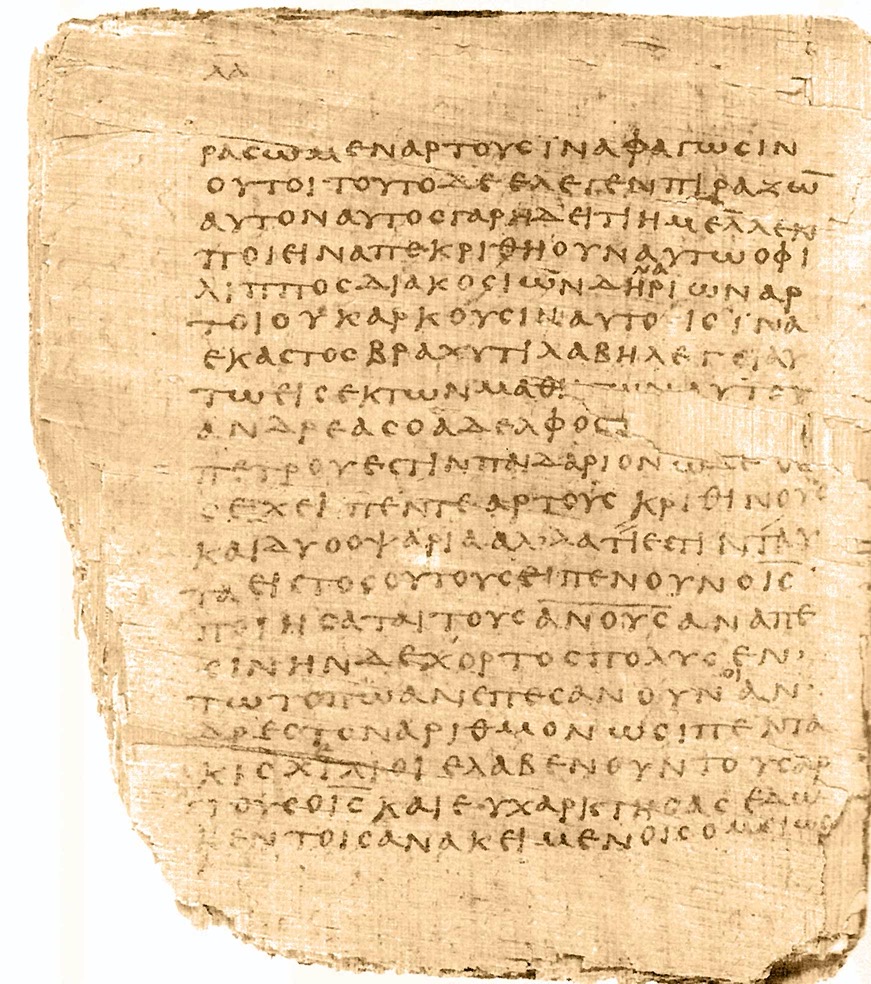 ΡΑϹΩΜΕΝΑΡΤΟΥϹΙΝΑΦΑΓΩϹΙΝ
ΟΥΤΟΙΤΟΥΤΟΔΕΕΛΕΓΕΝΠΙΡΑΖΩ̅
ΑΥΤΟΝΑΥΤΟϹΓΑΡΗΔΕΙΤΙΗΜΕΛΛΕΝ
ΠΟΙΕΙΝΑΠΕΚΡΙΘΗΟΥΝΑΥΤΩΟΦΙ
ΛΙΠΠΟϹΔΙΑΚΟϹΙΩΝΔΗΝΑΡΙΩΝΑΡ
ΤΟΙΟΥΚΑΡΚΟΥϹΙΝΑΥΤΟΙϹΙΝΑ
ΕΚΑϹΤΟϹΒΡΑΧΥΤΙΛΑΒΗΛΕΓΕΙΑΥ
ΤΩΕΙϹΕΚΤΩΝΜΑΘΗΤΩΝΑΥΤΟΥ
ΑΝΔΡΕΑϹΟΑΔΕΛΦΟϹ
ΠΕΤΡΟΥΕϹΤΙΝΠΑΙΔΑΡΙΟΝΩΔΕ
ϹΕΧΕΙΠΕΝΤΕΑΡΤΟΥϹΚΡΙΘΙΝΟΥϹ
ΚΑΙΔΥΟΟΨΑΡΙΑΑΛΛΑΤΙΕϹΤΙΝΤΑΥ
ΤΑΕΙϹΤΟϹΟΥΤΟΥϹΕΙΠΕΝΟΥΝΟΙ̅Ϲ̅
ΠΟΙΗϹΑΤΑΙΤΟΥϹΑ̅Ν̅Ο̅Υ̅Ϲ̅ΑΝΑΠΕ
ϹΙΝΗΝΔΕΧΟΡΤΟϹΠΟΛΥϹΕΝ
ΤΩΤΟΠΩΑΝΕΠΕϹΑΝΟΥΝΟΙΑΝ
ΔΡΕϹΤΟΝΑΡΙΘΜΟΝΩϹΙΠΕΝΤΑ
ΚΙϹΧΙΛΙΟΙΕΛΑΒΕΝΟΥΝΤΟΥϹΑΡ
ΤΟΥϹΟΙ̅Ϲ̅ΚΑΙΕΥΧΑΡΙϹΤΗϹΑϹΕΔΩ
ΚΕΝΤΟΙϹΑΝΑΚΕΙΜΕΝΟΙϹΟΜΟΙΩϹ